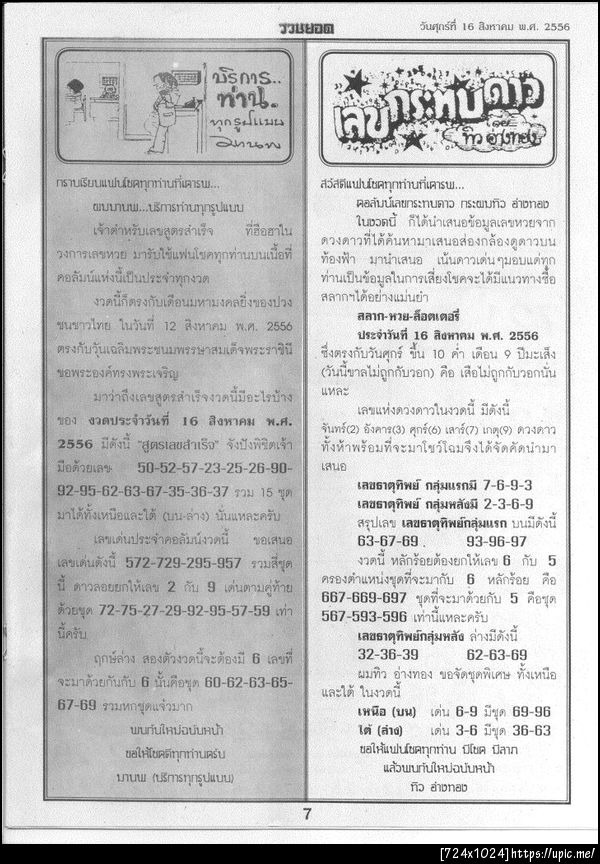 รวมยอด
วันศุกร์ที่ 16 สิงหาคม พ.ศ. 2556
บริการ..
ท่าน.
ทุกรูปแบบ
มานพ
กราบเรียนแฟนโชคทุกท่านที่เคารพ...
ผมมานพ...บริการท่านทุกรูปแบบ
เจ้าตำหรับเลขสูตรสำเร็จ ที่ฮือฮาใน
วงการเลขหวย มารับใช้แฟนโชคทุกท่านบนเนื้อที่
คอลัมน์แห่งนี้เป็นประจำทุกงวด
งวดนี้ก็ตรงกับเดือนมหามงคลยิ่งของปวง
ชนชาวไทย ในวันที่ 12 สิงหาคม พ.ศ. 2556
ตรงกับวันเฉลิมพระชนมพรรษาสมเด็จพระราชินี
ขอพระองค์ทรงพระเจริญ
มาว่าถึงเลขสูตรสำเร็จงวดนี้มีอะไรบ้าง
ของ งวดประจำวันที่ 16 สิงหาคม พ.ศ.
2556 มีดังนี้ "สูตรเลขสำเร็จ" จังปังพิชิตเจ้า
มือด้วยเลข 50-52-57-23-25-26-90-
92-95-62-63-67-35-36-37 รวม 15 ชุด
มาได้ทั้งเหนือและใต้ (บน-ล่าง) นั่นแหละครับ
เลขเด่นประจำคอลัมน์งวดนี้ ขอเสนอ
เลขเด่นดังนี้ 572-729-295-957 รวมสี่ชุด
นี้ ดาวลอยยกให้เลข 2 กับ 9 เด่นตามคู่ท้าย
ด้วยชุด 72-75-27-29-92-95-57-59 เท่า
นี้ครับ
ฤกษ์ล่าง สองตัวงวดนี้จะต้องมี 6 เลขที่
จะมาด้วยกันกับ 6 นั้นคือชุด 60-62-63-65-
67-69 รวมหกชุดแจ่วมาก
พบกันใหม่ฉบับหน้า
ขอให้โชคดีทุกท่านครับ
มานพ (บริการทุกรูปแบบ)
เลขกระทบดาว
โดย
ทิว อ่างทอง
สวัสดีแฟนโชคทุกท่านที่เคารพ...
คอลัมน์เลขกระทบดาว กระผมทิว อ่างทอง
ในงวดนี้ ก็ได้นำเสนอข้อมูลเลขหวยจาก
ดวงดาวที่ได้ค้นหามาเสนอส่องกล้องดูดาวบน
ท้องฟ้า มานำเสนอ เน้นดาวเด่นๆมอบแด่ทุก
ท่านเป็นข้อมูลในการเสี่ยงโชคจะได้มีแนวทางซื้อ
สลากฯได้อย่างแม่นยำ
สลาก-หวย-ล็อตเตอรี่
ประจำวันที่ 16 สิงหาคม พ.ศ. 2556
ซึ่งตรงกับวันศุกร์ ขึ้น 10 ค่ำ เดือน 9 ปีมะเส็ง
(วันนี้ขาลไม่ถูกกับวอก) คือ เสือไม่ถูกกับวอกนั่น
แหละ
เลขแห่งดวงดาวในงวดนี้ มีดังนี้
จันทร์(2) อังคาร(3) ศุกร์(6) เสาร์(7) เกตุ(9) ดวงดาว
ทั้งห้าพร้อมที่จะมาโชว์โฉมจึงได้จัดคัดนำมา
เสนอ
เลขธาตุทิพย์ กลุ่มแรกมี 7-6-9-3
เลขธาตุทิพย์ กลุ่มหลังมี 2-3-6-9
สรุปเลข เลขธาตุทิพย์กลุ่มแรก บนมีดังนี้
63-67-69 . 93-96-97
งวดนี้ หลักร้อยต้องยกให้เลข 6 กับ 5
ครองตำแหน่งชุดที่จะมากับ 6 หลักร้อย คือ
667-669-697 ชุดที่จะมาด้วยกับ 5 คือชุด
567-593-596 เท่านี้แหละครับ
เลขธาตุทิพย์กลุ่มหลัง ล่างมีดังนี้
32-36-39 62-63-69
ผมทิว อ่างทอง ขอจัดชุดพิเศษ ทั้งเหนือ
และใต้ ในงวดนี้
เหนือ (บน) เด่น 6-9 มีชุด 69-96
ใต้ (ล่าง) เด่น 3-6 มีชุด 36-63
ขอให้แฟนโชคทุกท่าน มีโชค มีลาภ
แล้วพบกันใหม่ฉบับหน้า
ทิว อ่างทอง
7
[724x1024]https://upic.me/